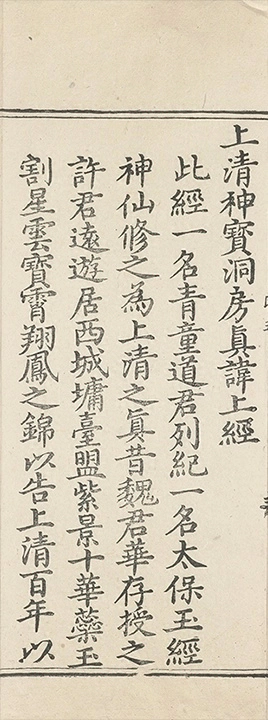 上清神寶洞房真諱上經
此經一名青童道君列紀一名太保玉經
神仙修之為上清之真昔魏君華存授之
許君遠遊居西城墉臺盟紫景十華蘂玉
割星雲寶霄翔鳳之錦以告上清百年以